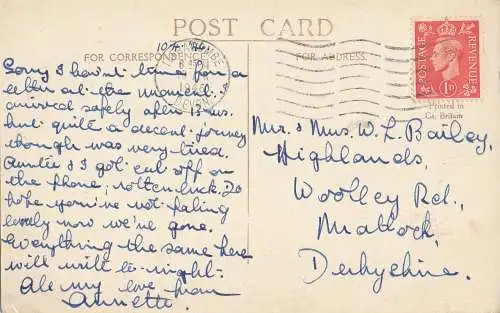 POST CARD
FOR CORRESPONDENCE
FOR ADDRESS.
Sorry I haven't time for a
letter at the moment.
arrived safely after 12
but quite a decent journey
though was very tired.
Auntie & I got cut off on
the phone; rotten luck. Do
hope you're not feeling
lonely now we've gone.
Everything the same here
will write to-night.
All my love from
Annette.
POSTAGE
REVENUE
1D
Printed in
Gt. Britain
Mr. & Mrs. W. L. Bailey,
Highlands,
Woolley Rd.,
Matlock,
Derbyshire.